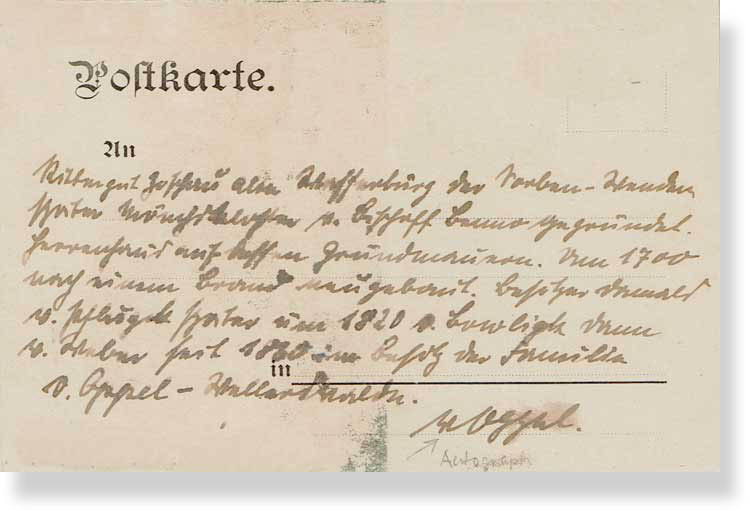 Postkarte.
An
Rittergut Zoschau alte Wasserburg der Sorben-Wenden
später Mönchskloster v. Bischoff Benno gegründet.
Herrenhaus auf alten Grundmauern. Um 1700
nach einem Brand neugebaut. Besitzer damals
v. später um 1820 v. dann
v. Weber seit 1860 im Besitz der Familie
in
v. Oppel - Wellerswalde.
v Oppel.
Autograph